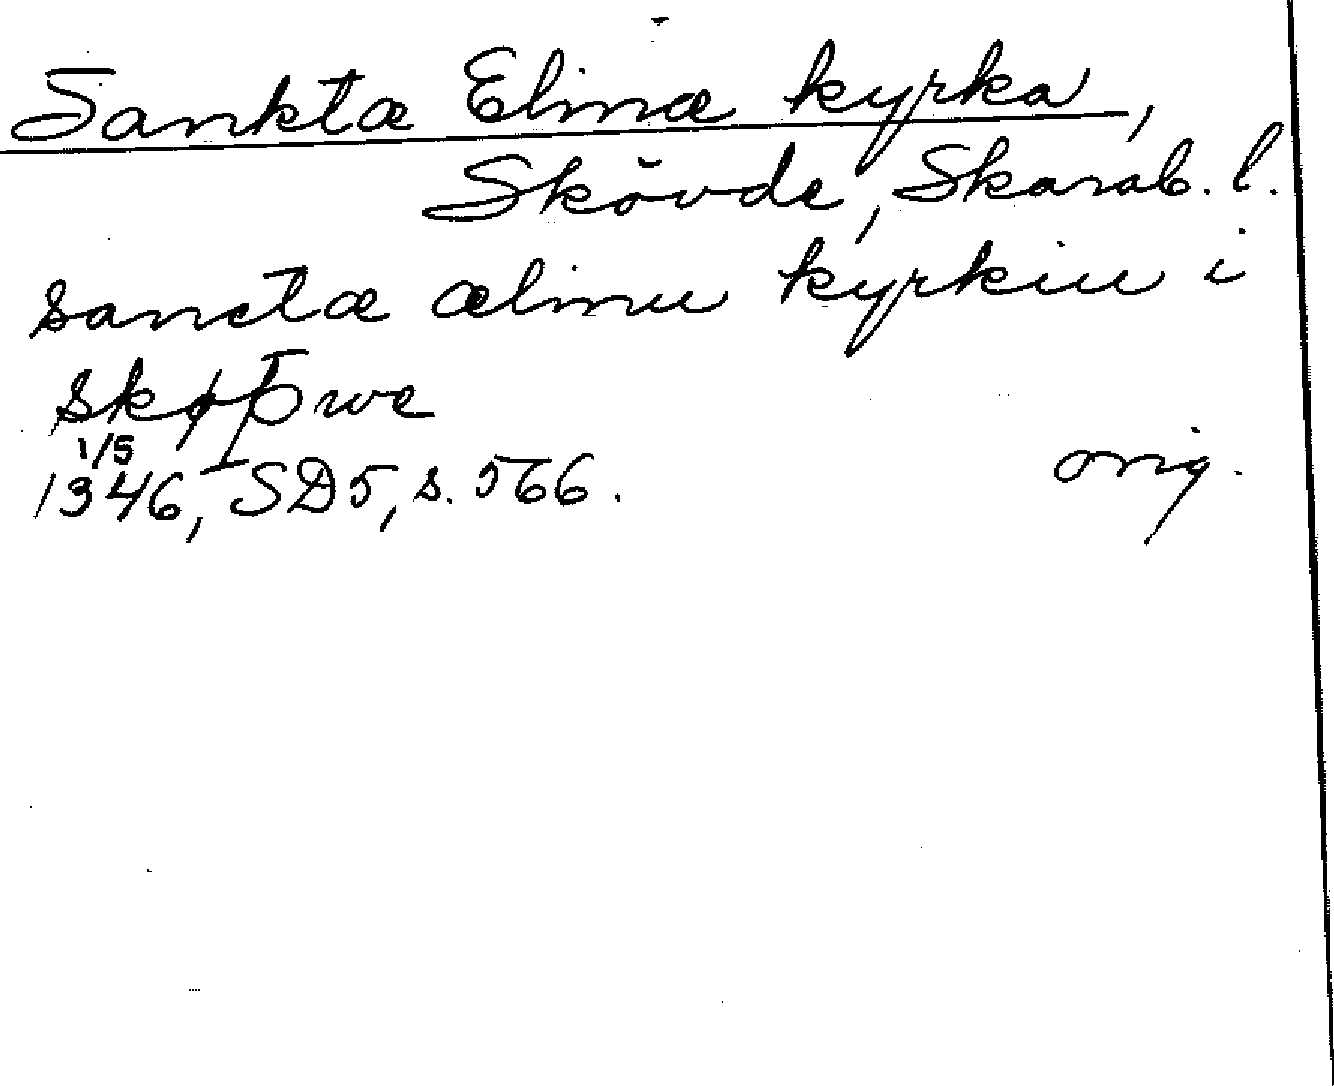 Sankta Elina kyrka,
Skövde, Skarab. l.
sancta ælinu kyrkiu i
skøþwe
1/5
1346, SD5, s. 566. orig.